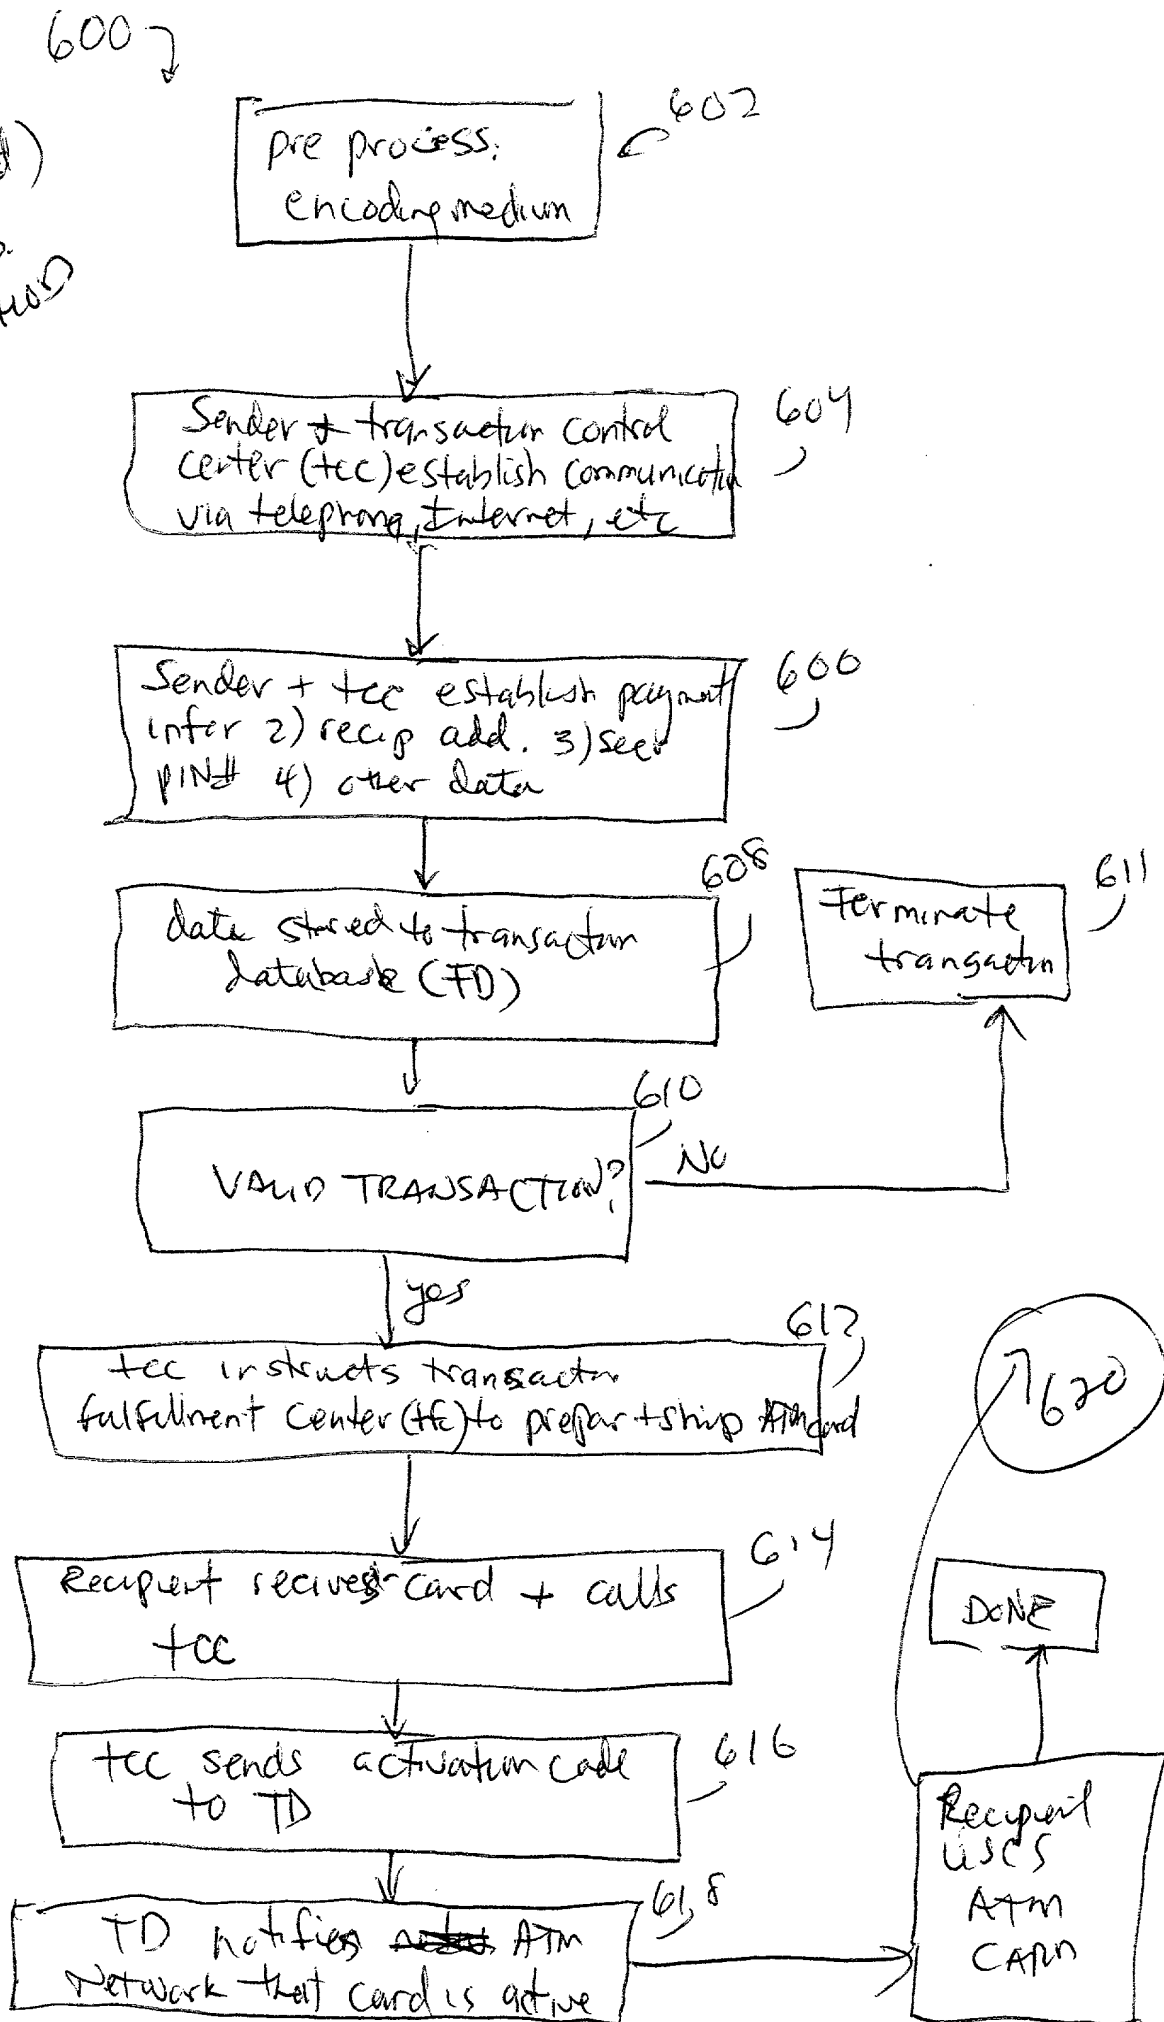 600
602
pre process:
encoding medium
Sender + transaction control
center (tcc) establish communication
via telephone, Internet, etc
604
Sender + tcc establish payment
infor 2) recip add. 3)
PIN# 4) other data
600
data stored to transaction
database (TD)
608
Terminate
transaction
611
VALID TRANSACTION?
610
No
yes
tcc instructs transaction
fulfillment center (tfc) to prepar + ship ATM card
612
620
Recipient recives card + calls
tcc
614
DONE
tcc sends activation code
to TD
616
TD notifies ATM
Network that card is active
618
Recipient
uses
ATM
CARD